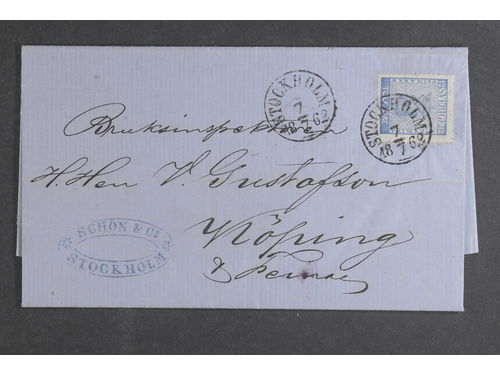 STOCKHOLM
7
7
1862
STOCKHOLM
7
7
1862
Bruksinspektoren
H. Herr V. Gustafson
Köping
&
SCHÖN & Co
STOCKHOLM